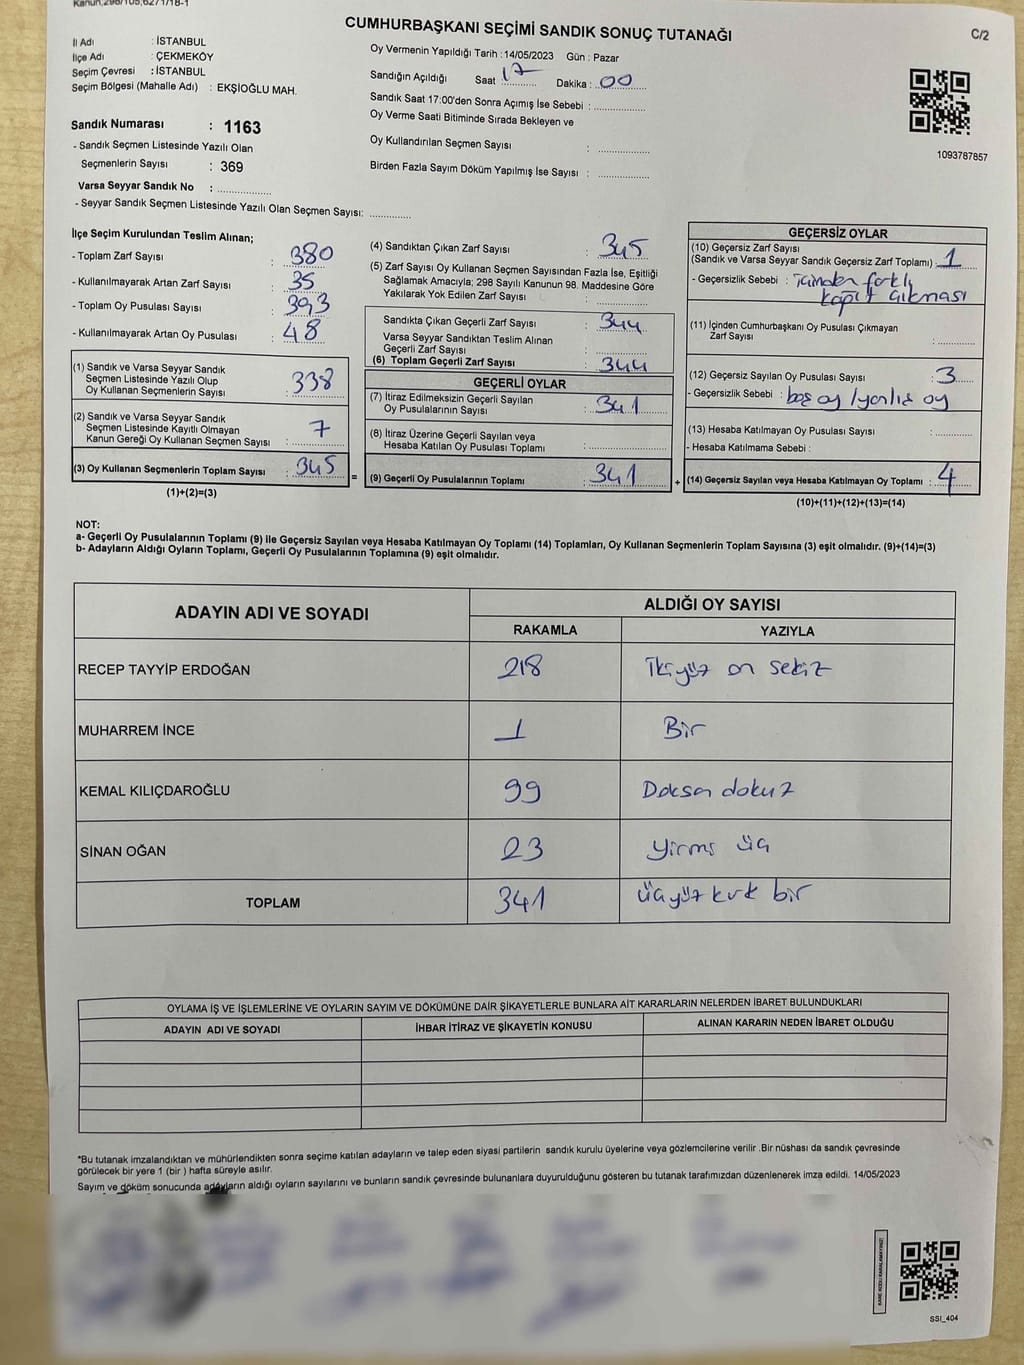 Kanun,298/105,6271/18-1
CUMHURBAŞKANI SEÇİMİ SANDIK SONUÇ TUTANAĞI
C/2
İl Adı : İSTANBUL
İlçe Adı : ÇEKMEKÖY
Seçim Çevresi : İSTANBUL
Seçim Bölgesi (Mahalle Adı) : EKŞİOĞLU MAH.
Sandık Numarası : 1163
- Sandık Seçmen Listesinde Yazılı Olan
Seçmenlerin Sayısı : 369
Varsa Seyyar Sandık No : ..................
- Seyyar Sandık Seçmen Listesinde Yazılı Olan Seçmen Sayısı: ..............
Oy Vermenin Yapıldığı Tarih : 14/05/2023 Gün : Pazar
Sandığın Açıldığı Saat : 17 Dakika : 00
Sandık Saat 17:00'den Sonra Açımış İse Sebebi : .................
Oy Verme Saati Bitiminde Sırada Bekleyen ve
Oy Kullandırılan Seçmen Sayısı : .................
Birden Fazla Sayım Döküm Yapılmış İse Sayısı : .................
1093787857
İlçe Seçim Kurulundan Teslim Alınan;
- Toplam Zarf Sayısı : 380
- Kullanılmayarak Artan Zarf Sayısı : 35
- Toplam Oy Pusulası Sayısı : 393
- Kullanılmayarak Artan Oy Pusulası : 48
(1) Sandık ve Varsa Seyyar Sandık
Seçmen Listesinde Yazılı Olup
Oy Kullanan Seçmenlerin Sayısı : 338
(2) Sandık ve Varsa Seyyar Sandık
Seçmen Listesinde Kayıtlı Olmayan
Kanun Gereği Oy Kullanan Seçmen Sayısı : 7
(3) Oy Kullanan Seçmenlerin Toplam Sayısı : 345
(1)+(2)=(3)
=
(4) Sandıktan Çıkan Zarf Sayısı : 345
(5) Zarf Sayısı Oy Kullanan Seçmen Sayısından Fazla İse, Eşitliği
Sağlamak Amacıyla; 298 Sayılı Kanunun 98. Maddesine Göre
Yakılarak Yok Edilen Zarf Sayısı : .................
Sandıkta Çıkan Geçerli Zarf Sayısı : 344
Varsa Seyyar Sandıktan Teslim Alınan
Geçerli Zarf Sayısı : .................
(6) Toplam Geçerli Zarf Sayısı : 344
GEÇERLİ OYLAR
(7) İtiraz Edilmeksizin Geçerli Sayılan
Oy Pusulalarının Sayısı : 341
(8) İtiraz Üzerine Geçerli Sayılan veya
Hesaba Katılan Oy Pusulası Toplamı : .................
(9) Geçerli Oy Pusulalarının Toplamı : 341
+
GEÇERSİZ OYLAR
(10) Geçersiz Zarf Sayısı
(Sandık ve Varsa Seyyar Sandık Geçersiz Zarf Toplamı) : 1
- Geçersizlik Sebebi : içinden farklı
kağıt çıkması
(11) İçinden Cumhurbaşkanı Oy Pusulası Çıkmayan
Zarf Sayısı : ............
(12) Geçersiz Sayılan Oy Pusulası Sayısı : 3
- Geçersizlik Sebebi : boş oy / yanlış oy
(13) Hesaba Katılmayan Oy Pusulası Sayısı : ............
- Hesaba Katılmama Sebebi :
(14) Geçersiz Sayılan veya Hesaba Katılmayan Oy Toplamı : 4
(10)+(11)+(12)+(13)=(14)
NOT:
a- Geçerli Oy Pusulalarının Toplamı (9) ile Geçersiz Sayılan veya Hesaba Katılmayan Oy Toplamı (14) Toplamları, Oy Kullanan Seçmenlerin Toplam Sayısına (3) eşit olmalıdır. (9)+(14)=(3)
b- Adayların Aldığı Oyların Toplamı, Geçerli Oy Pusulalarının Toplamına (9) eşit olmalıdır.
ADAYIN ADI VE SOYADI ALDIĞI OY SAYISI
RAKAMLA YAZIYLA
RECEP TAYYİP ERDOĞAN 218 İkiyüz on sekiz
MUHARREM İNCE 1 Bir
KEMAL KILIÇDAROĞLU 99 Doksan dokuz
SİNAN OĞAN 23 yirmi üç
TOPLAM 341 üçyüz kırk bir
OYLAMA İŞ VE İŞLEMLERİNE VE OYLARIN SAYIM VE DÖKÜMÜNE DAİR ŞİKAYETLERLE BUNLARA AİT KARARLARIN NELERDEN İBARET BULUNDUKLARI
ADAYIN ADI VE SOYADI İHBAR İTİRAZ VE ŞİKAYETİN KONUSU ALINAN KARARIN NEDEN İBARET OLDUĞU
*Bu tutanak imzalandıktan ve mühürlendikten sonra seçime katılan adayların ve talep eden siyasi partilerin sandık kurulu üyelerine veya gözlemcilerine verilir .Bir nüshası da sandık çevresinde
görülecek bir yere 1 (bir ) hafta süreyle asılır.
Sayım ve döküm sonucunda adayların aldığı oyların sayılarını ve bunların sandık çevresinde bulunanlara duyurulduğunu gösteren bu tutanak tarafımızdan düzenlenerek imza edildi. 14/05/2023
KARE KODU KARALAMAYINIZ!
SSI_404